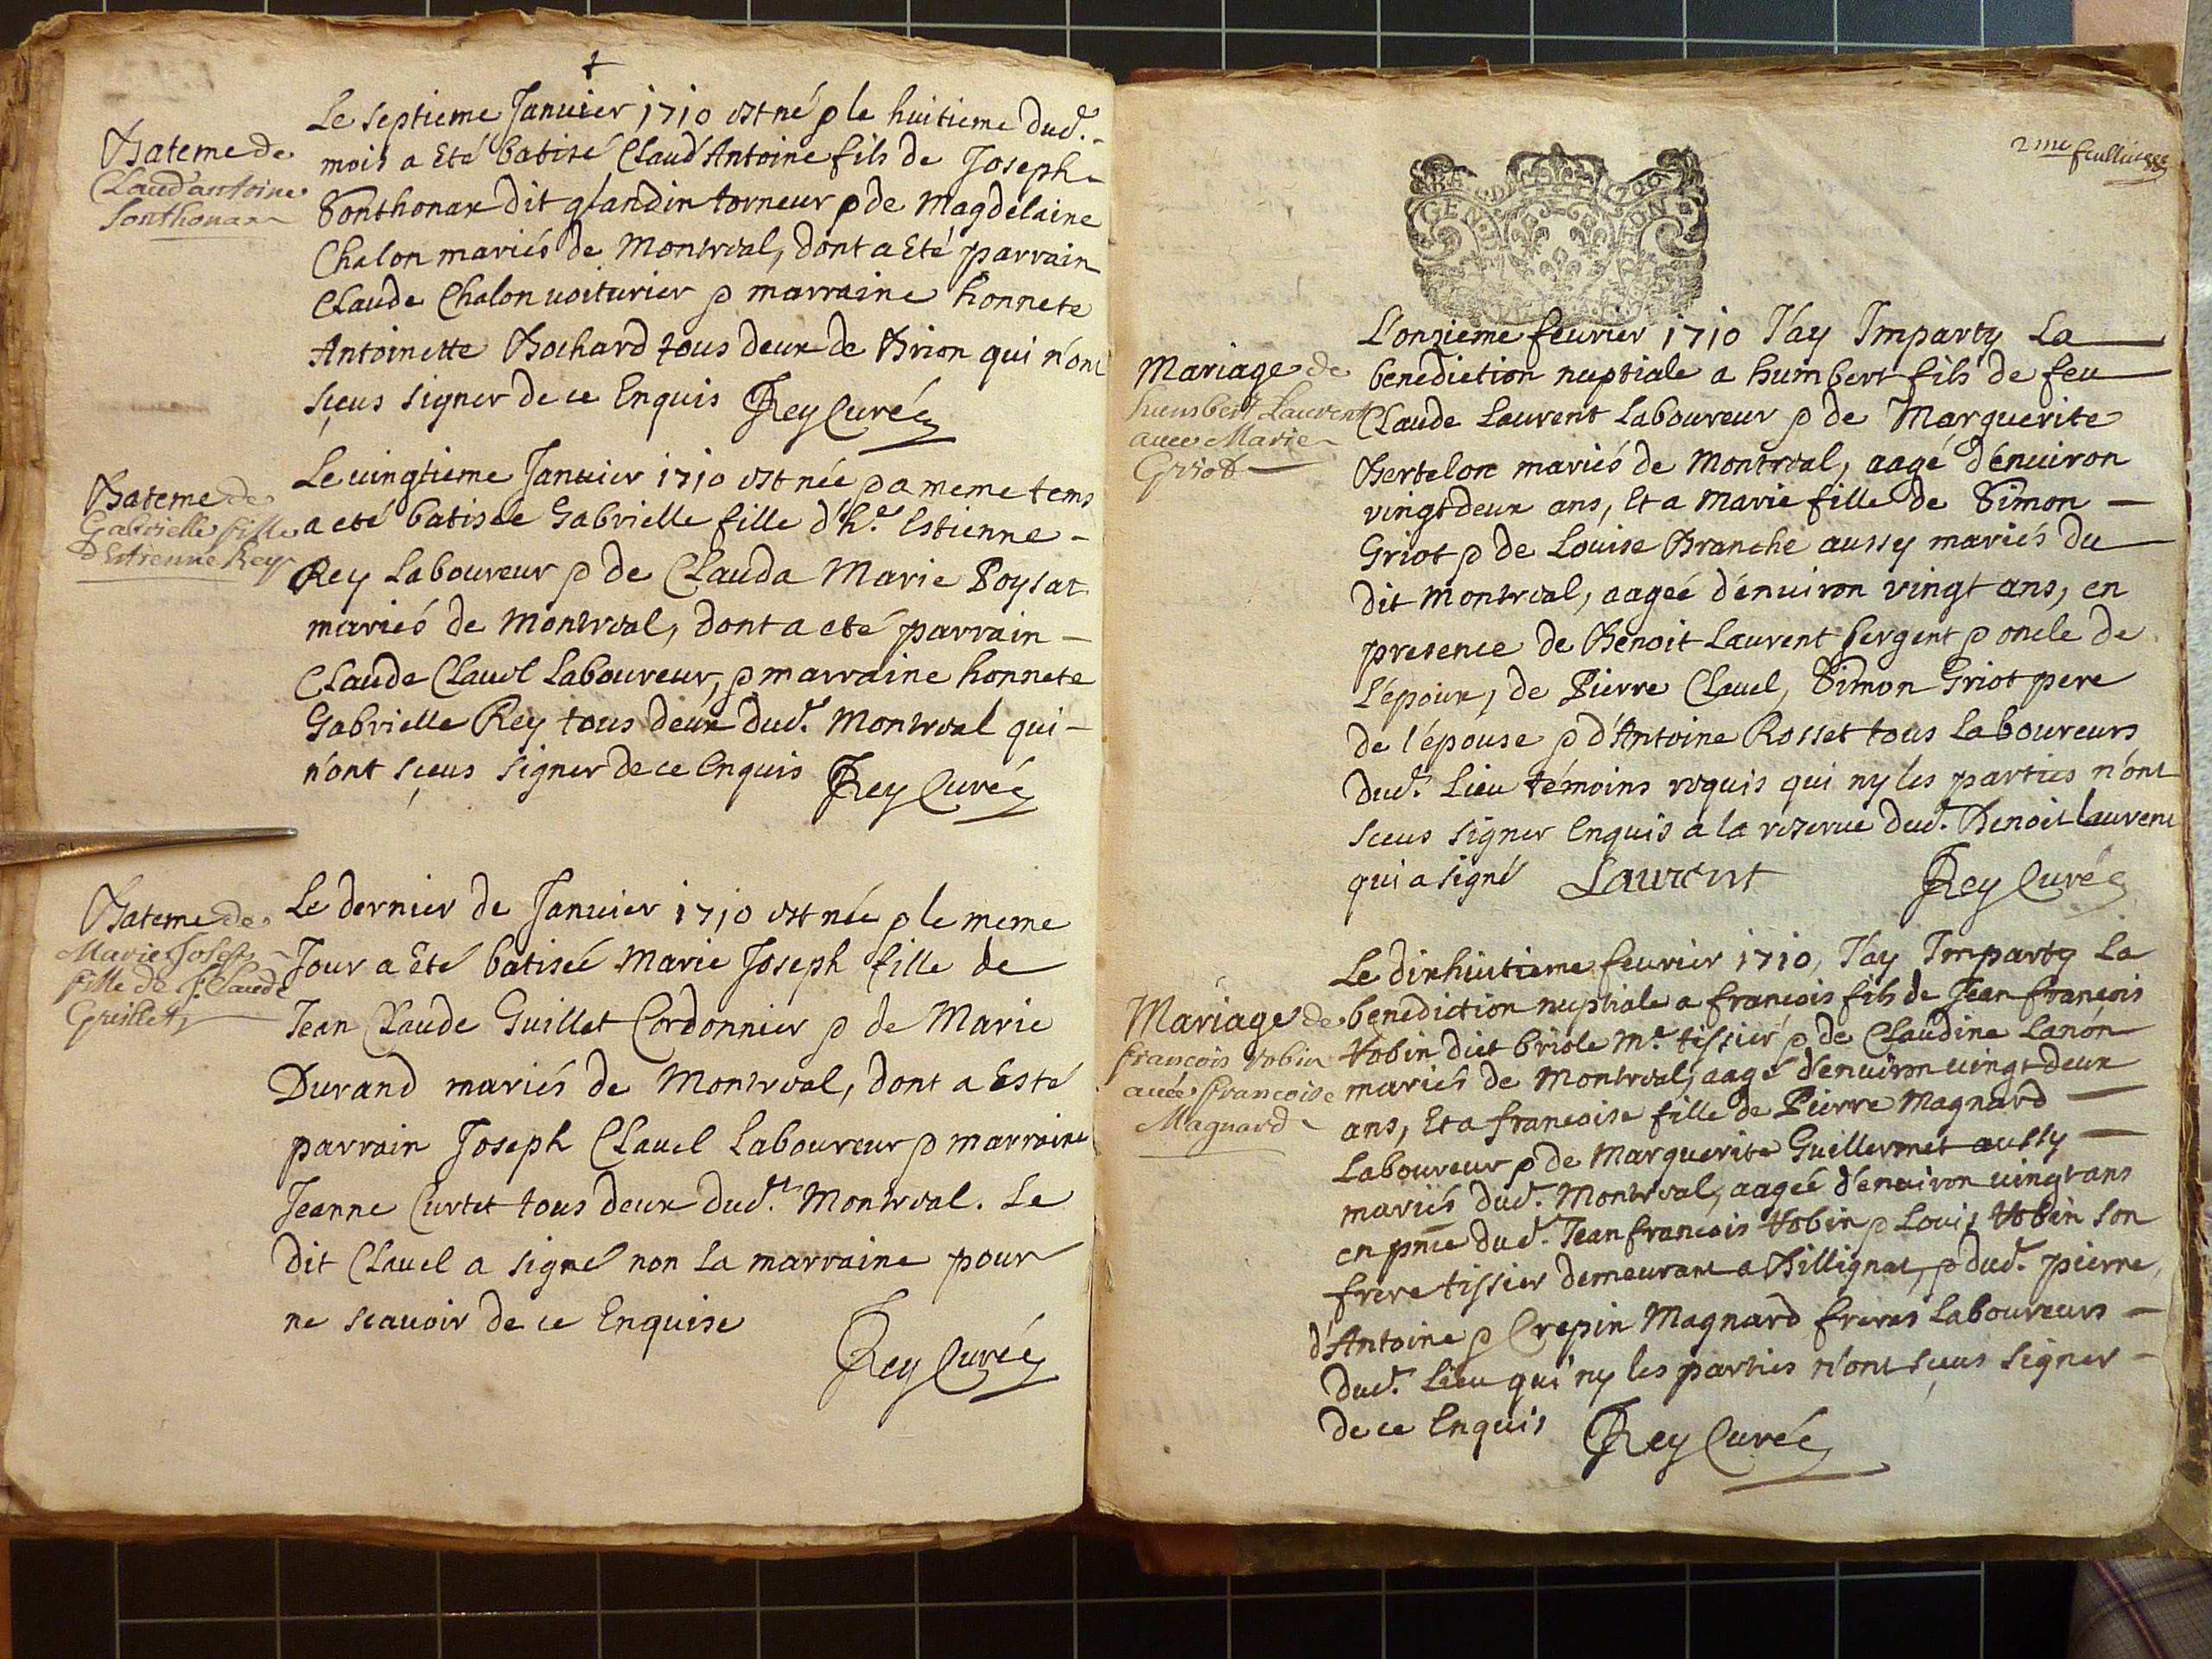 Bateme de
Claud'antoine
Sonthonax
Le septieme Janvier 1710 est né & le huitieme dud.
mois a Eté batisé Claud'Antoine fils de Joseph
Sonthonax dit glandin torneur & de Magdelaine
Chalon mariés de Montreal, dont a Eté parrain
Claude Chalon voiturier & marraine honnete
Antoinette Bochard tous deux de Brion qui n'ont
sçeus signer de ce Enquis Rey Curé
Bateme de
Gabrielle fille
d'Estienne Rey
Le vingtieme Janvier 1710 est née & a meme tems
a eté batisée Gabrielle fille d'h.e Estienne
Rey Laboureur & de Clauda Marie Poysat
mariés de Montreal, dont a eté parrain
Claude Clavel Laboureur, & marraine honnete
Gabrielle Rey tous deux dud. Montreal qui
n'ont sçeus signer de ce Enquis Rey Curé
Bateme de
Marie Joseph
fille de J. Claude
Guillet
Le dernier de Janvier 1710 est née & le meme
Jour a Eté batiseé Marie Joseph fille de
Jean Claude Guillet Cordonnier & de Marie
Durand mariés de Montreal, dont a Esté
parrain Joseph Clavel Laboureur & marraine
Jeanne Curtet tous deux dud.t Montreal. Le
dit Clavel a signé non la marraine pour
ne scavoir de ce Enquise
Rey Curé
2me feullie
GEN
Mariage de
humbert Laurent
avec Marie
Griot
L'onzieme fevrier 1710 J'ay Imparty La
benediction nuptiale a humbert fils de feu
Claude Laurent Laboureur & de Marguerite
Bertelon mariés de Montreal, aagé d'environ
vingtdeux ans, Et a Marie fille de Simon
Griot & de Louise Branche aussy mariés du
dit Montreal, aageé d'environ vingt ans, en
presence de Benoit Laurent sergent & oncle de
l'époux, de Pierre Clavel, Simon Griot pere
de l'épouse & d'Antoine Rosset tous Laboureurs
dud. Lieu témoins requis qui ny les parties n'ont
sceus signer Enquis a la reserve dud. Benoit Laurent
qui a signé Laurent Rey Curé
Mariage de
francois vobin
avec francoise
Magnard
Le dixhuitieme fevrier 1710, J'ay Imparty La
benediction nuptiale a francois fils de Jean francois
Vobin dit briole M.e tissier & de Claudine Lanón
mariés de Montreal, aagé d'environ vingt deux
ans, Et a francoise fille de Pierre Magnard
Laboureur & de Marguerite Guillermet aussy
mariés dud. Montreal, aageé d'environ vingt ans
en pnce dud. Jean francois Vobin & Louis Vobin son
frere tissier demeurant a Billignat, & dud. pierre,
d'Antoine & Crepin Magnard freres Laboureurs
dud. Lieu qui ny les parties n'ont sçeus signer
de ce Enquis Rey Curé